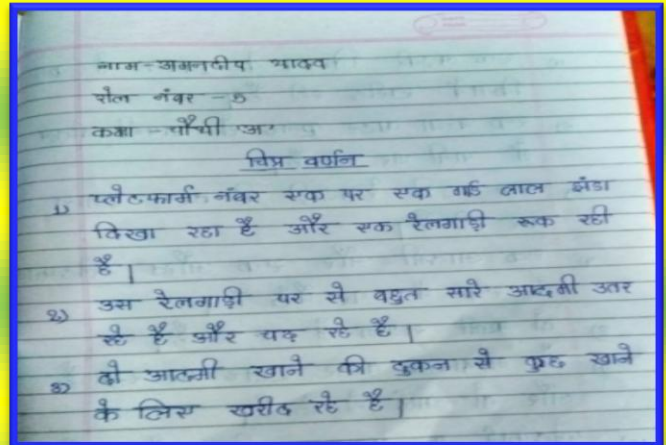 नाम - अमनदीप यादव
रोल नंबर - 5
कक्षा - चौथी 'अ'
चित्र वर्णन
1) प्लेटफार्म नंबर एक पर एक गार्ड लाल झंडा
दिखा रहा है और एक रेलगाड़ी रूक रही
है।
2) उस रेलगाड़ी पर से बहुत सारे आदमी उतर
रहे है और चढ़ रहे है।
3) दो आदमी खाने की दुकन से कुछ खाने
के लिए खरीद रहे है।